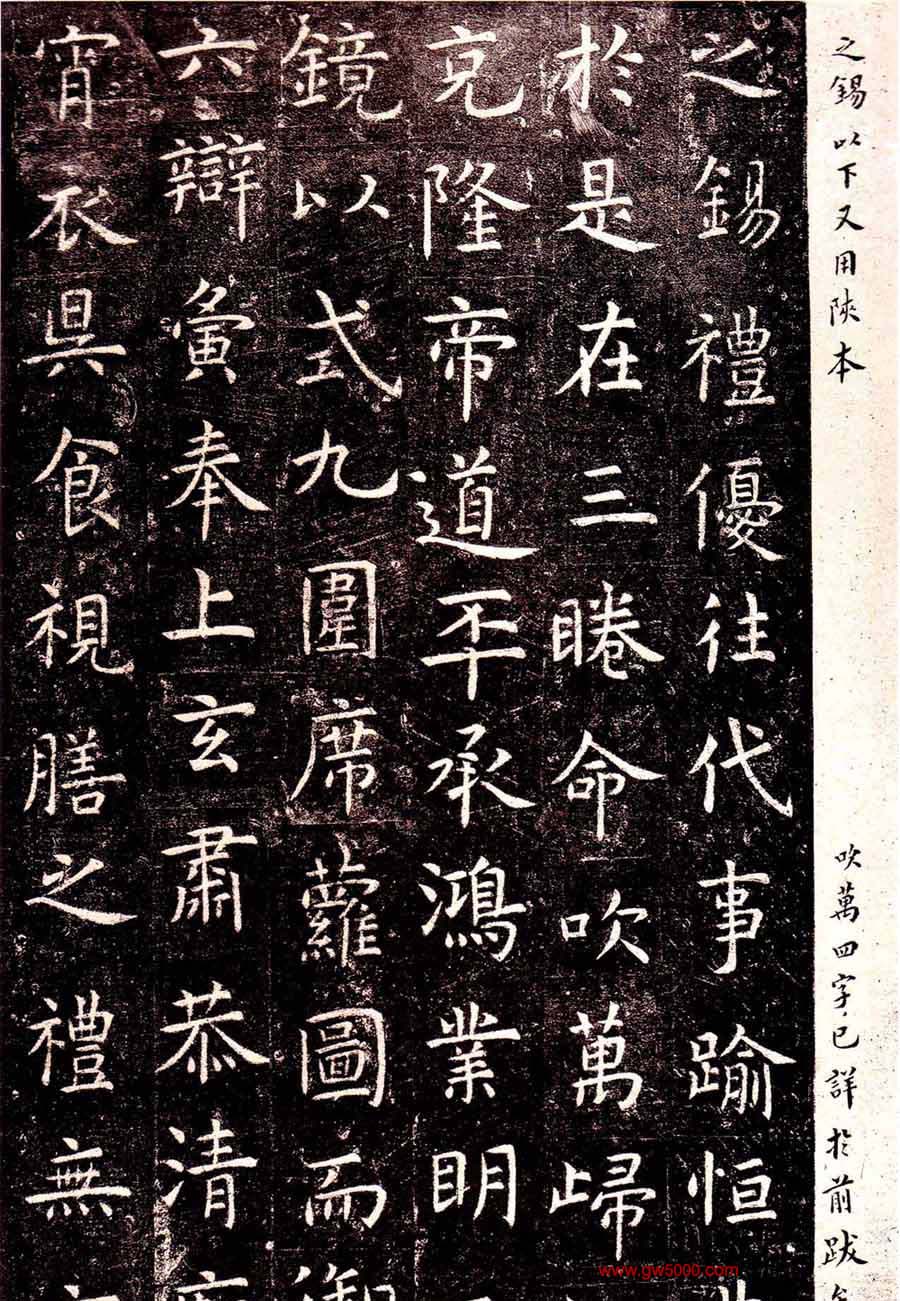 之錫以下又用陝本
吹萬四字已詳於前跋
之錫禮優往代事踰恒
於是在三睠命吹萬歸
克隆帝道丕承鴻業明
鏡以式九圍席蘿圖而御
六辯寅奉上玄肅恭清
宵衣昃食視膳之禮無
www.gw5000.com